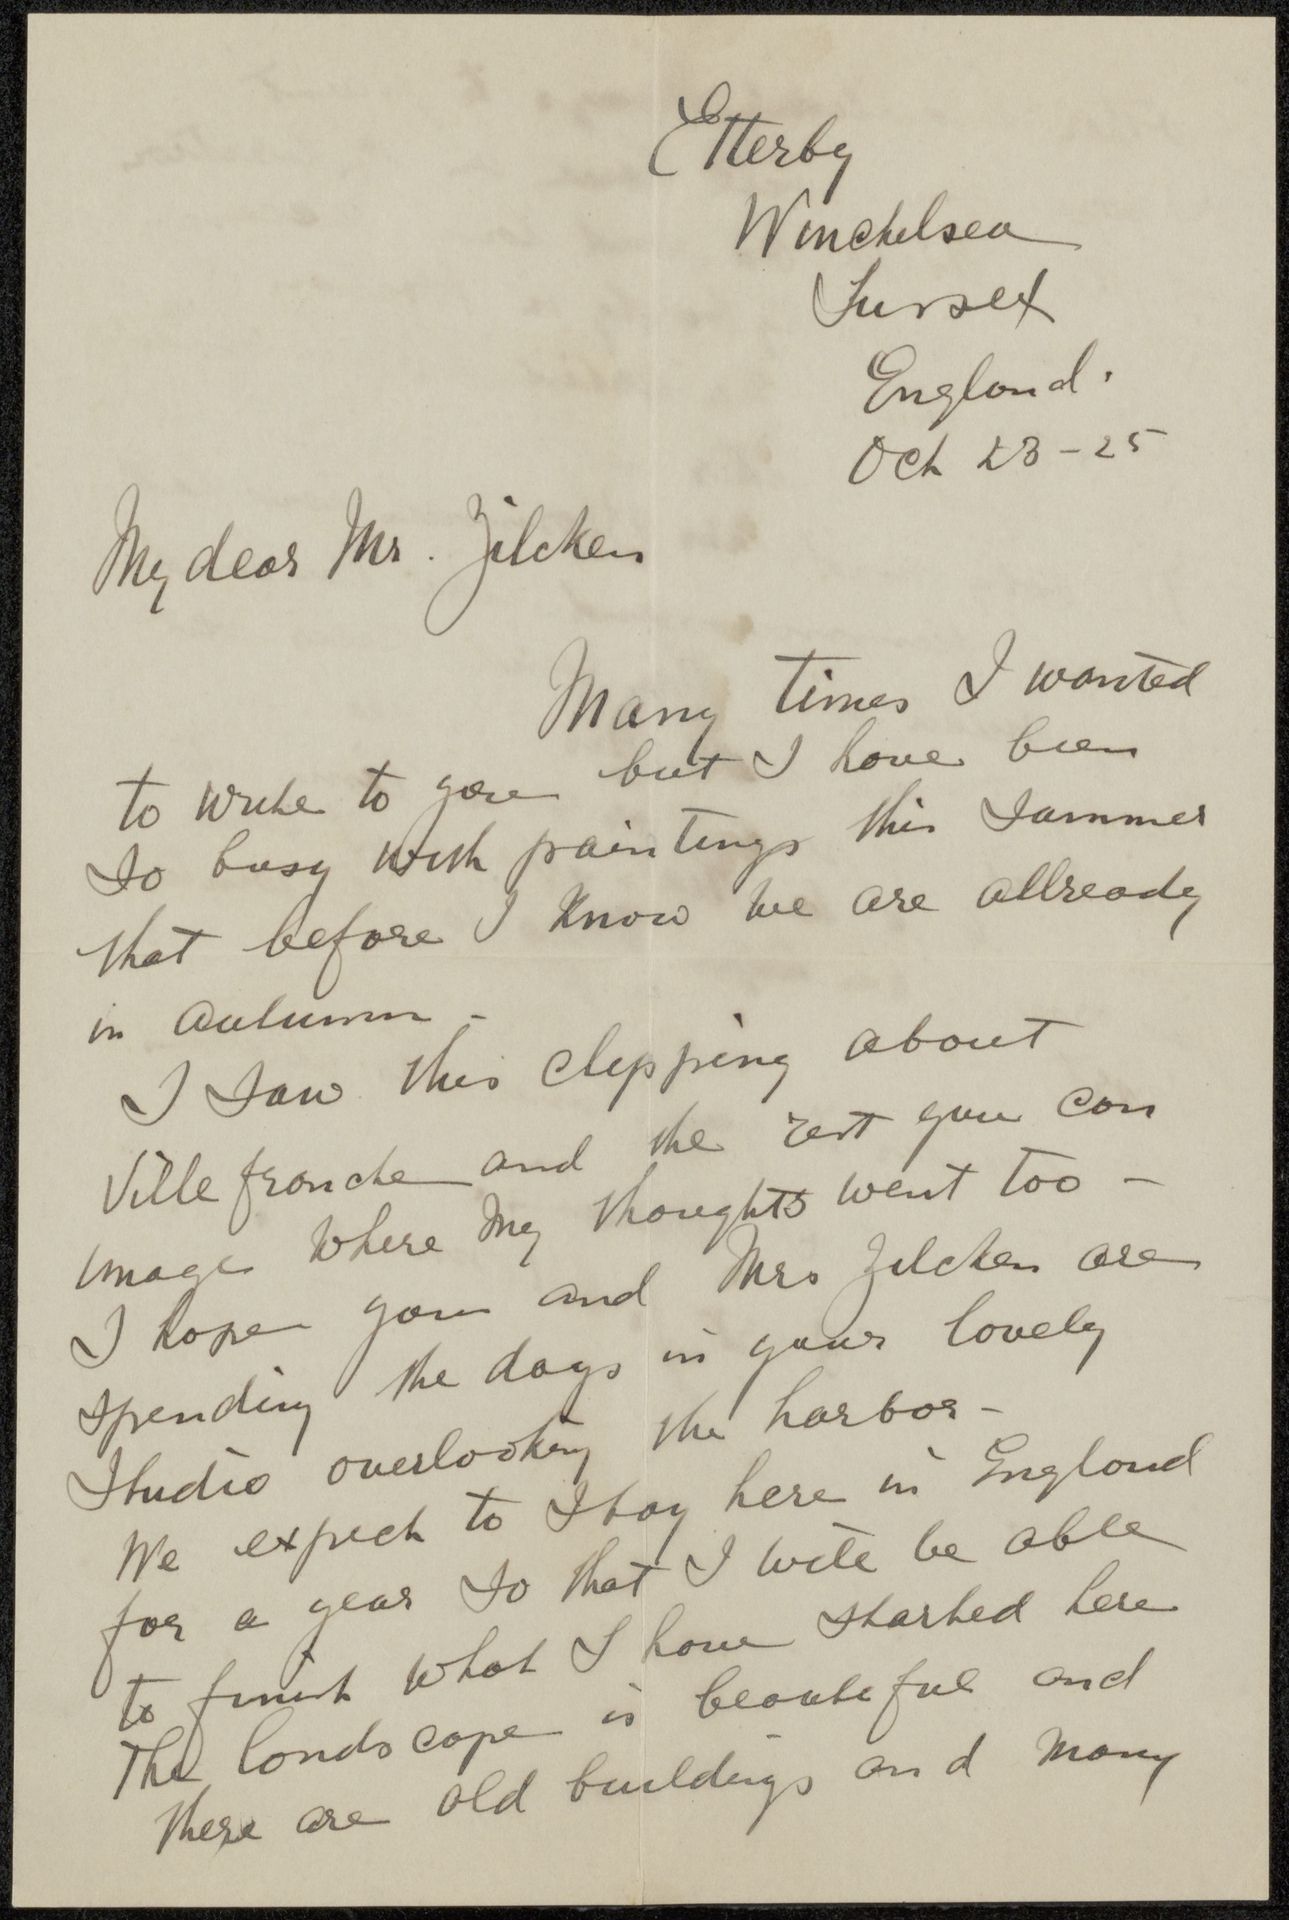 Etterby
Winchelsea
Sussex
England.
Oct 23-25
My dear Mr. Zilcken
Many times I wanted
to write to you but I have been
so busy with paintings this summer
that before I know we are allready
in autumn -
I saw this clipping about
Villefranche and the rest you can
image where my thoughts went too -
I hope you and Mrs Zilcken are
spending the days in your lovely
studio overlooking the harbor -
We expect to stay here in England
for a year so that I will be able
to finish what I have started here
The landscape is beautiful and
there are old buildings and many